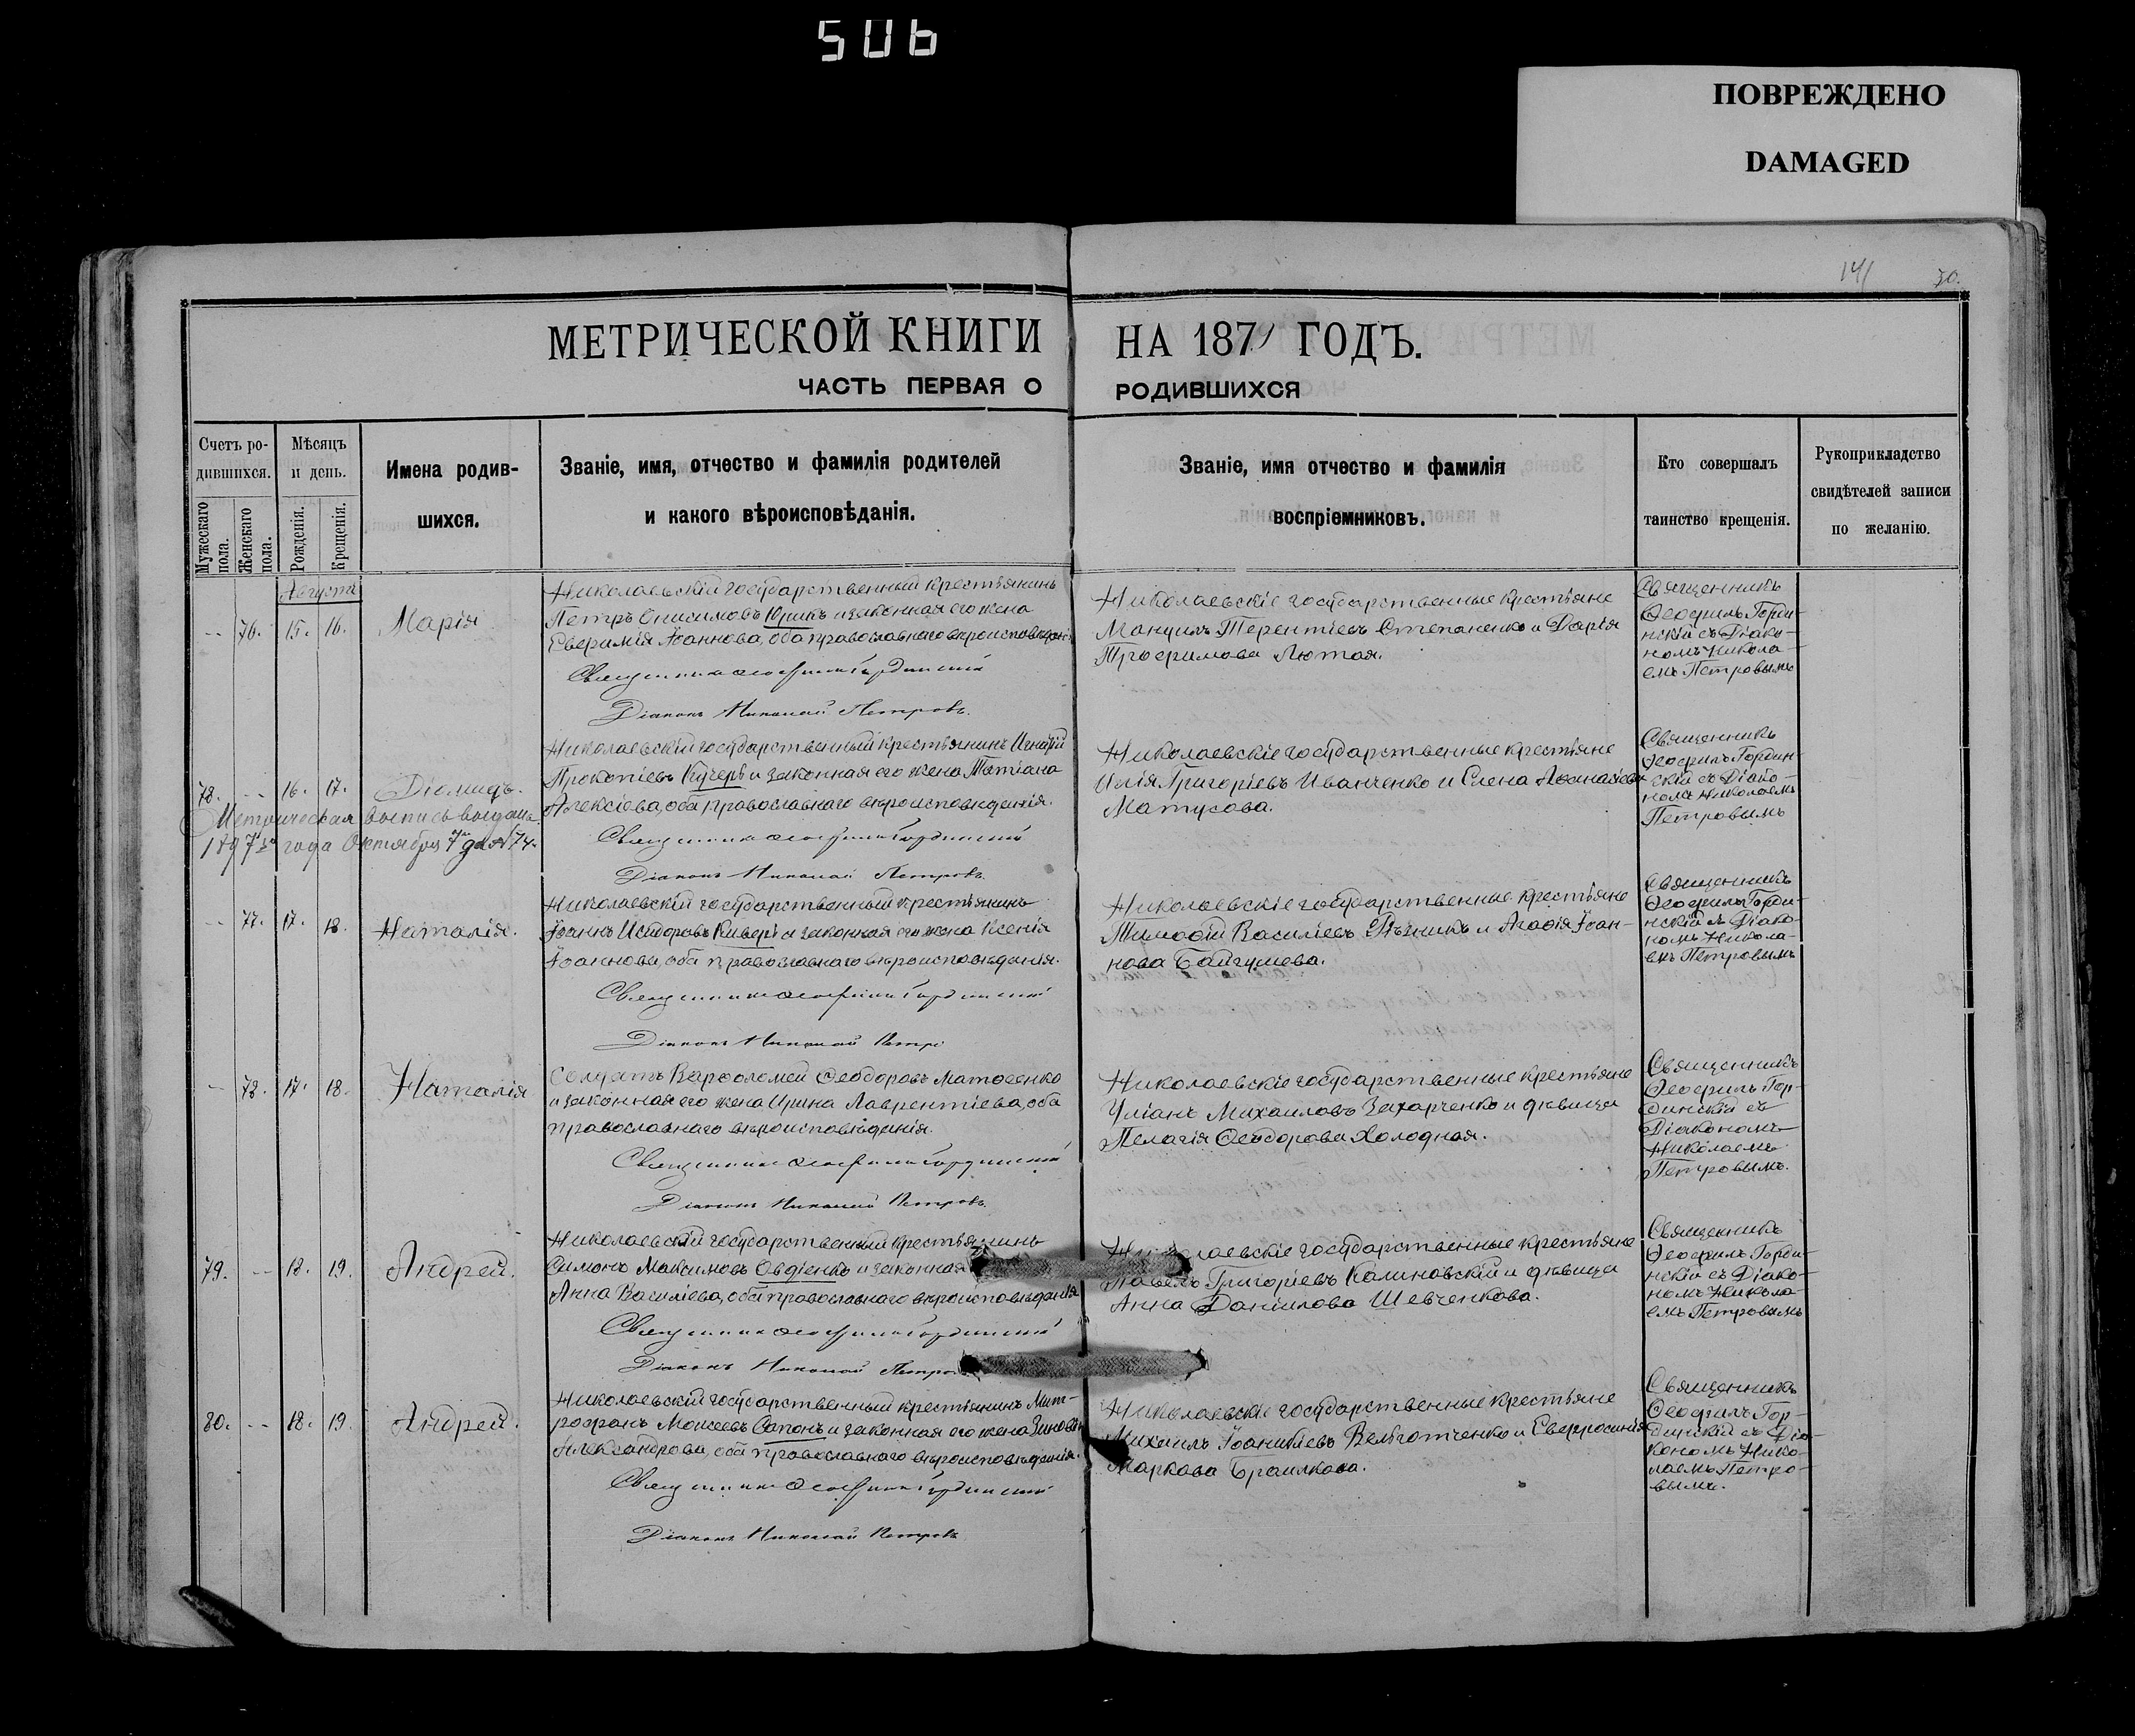 506
ПОВРЕЖДЕНО
DAMAGED
141
70.
МЕТРИЧЕСКОЙ КНИГИ НА 1871 ГОДЪ.
ЧАСТЬ ПЕРВАЯ О РОДИВШИХСЯ
Счетъ ро-
дившихся.
Мужескаго пола.
Женскаго пола.
Мѣсяцъ
и день.
Рожденія.
Крещенія.
Имена родив-
шихся.
Званіе, имя, отчество и фамилія родителей
и какого вѣроисповѣданія.
Званіе, имя отчество и фамилія
воспріемниковъ.
Кто совершалъ
таинство крещенія.
Рукоприкладство
свидѣтелей записи
по желанію.
Августа
-- 76. 15. 16. Марія
Николаевскій государственный крестьянинъ
Петръ Онисимовъ Юрикъ и законная его жена
Евфимія Іоаннова, оба православнаго вѣроисповѣдані
Священникъ Ѳеофилъ Гординскій
Діаконъ Николай Петровъ.
Николаевскіе государственные крестьяне
Мануилъ Терентіевъ Степаненко и Дарія
Трофимова Лютая.
Священникъ
Ѳеофилъ Горди-
нскій съ Діако-
номъ Никола-
емъ Петровымъ
78. -- 16. 17. Діомидъ.
Метрическая выпись выдана
1897го года Октября 7 дня №74.
Николаевскій государственный крестьянинъ Игнатій
Прокопіевъ Кучеръ и законная его жена Татіана
Алексіева, оба православнаго вѣроисповѣданія.
Священникъ Ѳеофилъ Гординскій
Діаконъ Николай Петровъ.
Николаевскіе государственные крестьяне
Илія Григоріевъ Иванченко и Елена Аѳанасіева
Матусова.
Священникъ
Ѳеофилъ Гордин-
скій съ Діако-
номъ Николаемъ
Петровымъ
-- 77. 17. 18. Наталія.
Николаевскій государственный крестьянинъ
Іоаннъ Исидоровъ Киверъ и законная его жена Ксенія
Іоаннова, оба православнаго вѣроисповѣданія.
Священникъ Ѳеофилъ Гординскій
Діаконъ Николай Петро
Николаевскіе государственные крестьяне
Тимоѳій Василіевъ и Агафія Іоан-
нова Байгушева.
Священникъ
Ѳеофилъ Горди-
нскій съ Діако-
номъ Никола-
емъ Петровымъ
-- 78. 17. 18. Наталія
Солдатъ Варѳоломей Ѳеодоровъ Матвеенко
и законная его жена Ирина Лаврентіева, оба
православнаго вѣроисповѣданія.
Священникъ Ѳеофилъ Гординскій
Діаконъ Николай Петровъ.
Николаевскіе государственные крестьяне
Уліанъ Михаиловъ Захарченко и дѣвица
Пелагія Ѳеодорова Холодная.
Священникъ
Ѳеофилъ Гор-
динскій съ
Діакономъ
Николаемъ
Петровымъ.
79. -- 18. 19. Андрей.
Николаевскій государственный крестьянинъ
Симонъ Максимовъ Овдіенко и законная
Анна Василіева, оба православнаго вѣроисповѣданія
Священникъ Ѳеофилъ Гординскій
Діаконъ Николай Петро
Николаевскіе государственные крестьяне
Павелъ Григоріевъ Калиновскій и дѣвица
Анна Даніилова Шевченкова.
Священникъ
Ѳеофилъ Горди-
нскій съ Діако-
номъ Никола-
емъ Петровымъ
80. -- 18. 19. Андрей.
Николаевскій государственный крестьянинъ Мит-
рофанъ Моисеевъ Сапонъ и законная его жена Зиновія
Александрова, оба православнаго вѣроисповѣданія.
Священникъ Ѳеофилъ Гординскій
Діаконъ Николай Петровъ
Николаевскіе государственные крестьяне
Михаилъ Іоанникіевъ и Евфросинія
Маркова Браилкова.
Священникъ
Ѳеофилъ Гор-
динскій съ Діа-
кономъ Нико-
лаемъ Петро-
вымъ.